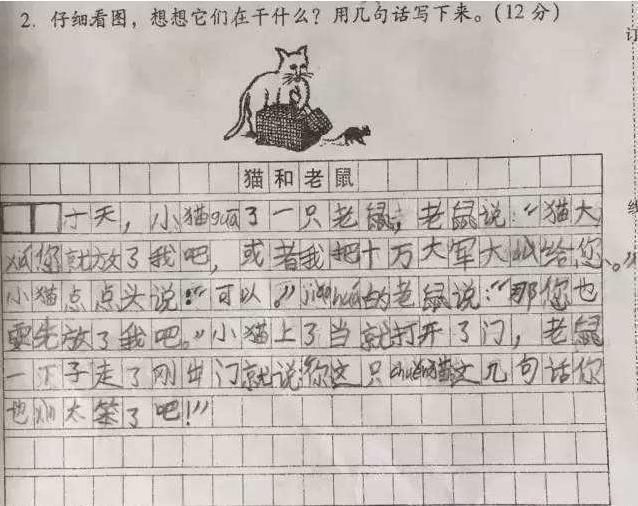 2. 仔细看图，想想它们在干什么？用几句话写下来。(12 分)
订
猫和老鼠
十天，小猫gua了一只老鼠，老鼠说：“猫大
您就放了我吧，或者我把十万大军大给您。”
线
小猫点点头说：“可以。”jiǎohuá的老鼠说：“那您也
要先放了我吧。”小猫上了当就打开了门，老鼠
一下子走了刚出门就说：你这只猫这几句话你
也太笨了吧！”